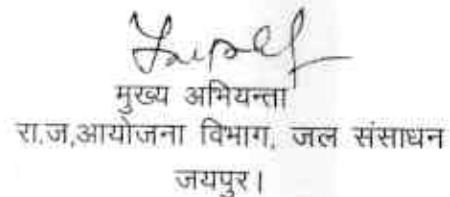 मुख्य अभियन्ता
रा.ज,आयोजना विभाग, जल संसाधन
जयपुर।